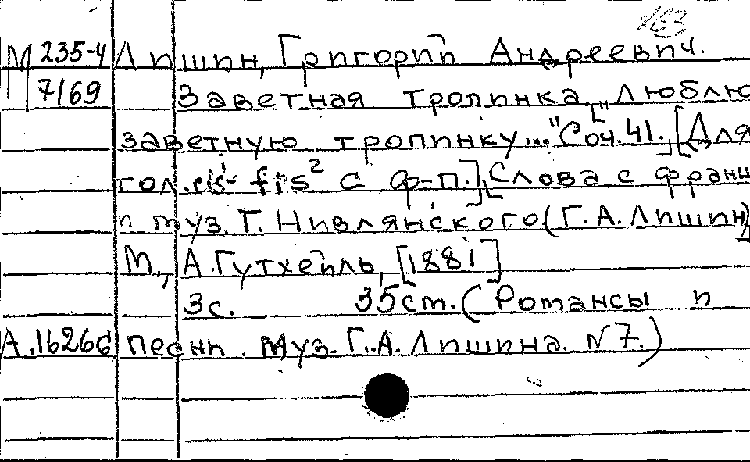 163
М 235-4 Липин, Григорий Андреевич.
7169 Заветная тропинка. ["Люблю
заветную тропинку..." Соч. 41. [Для
гол. cis¹-fis² с ф-п.]. [Слова с франц.
и муз. Г. Нивлянского (Г. А. Лишин)
М., А. Гутхейль, [1881]
3с. 35см. (Романсы и
А.1626б песни. муз. Г. А. Лишина. №7.)